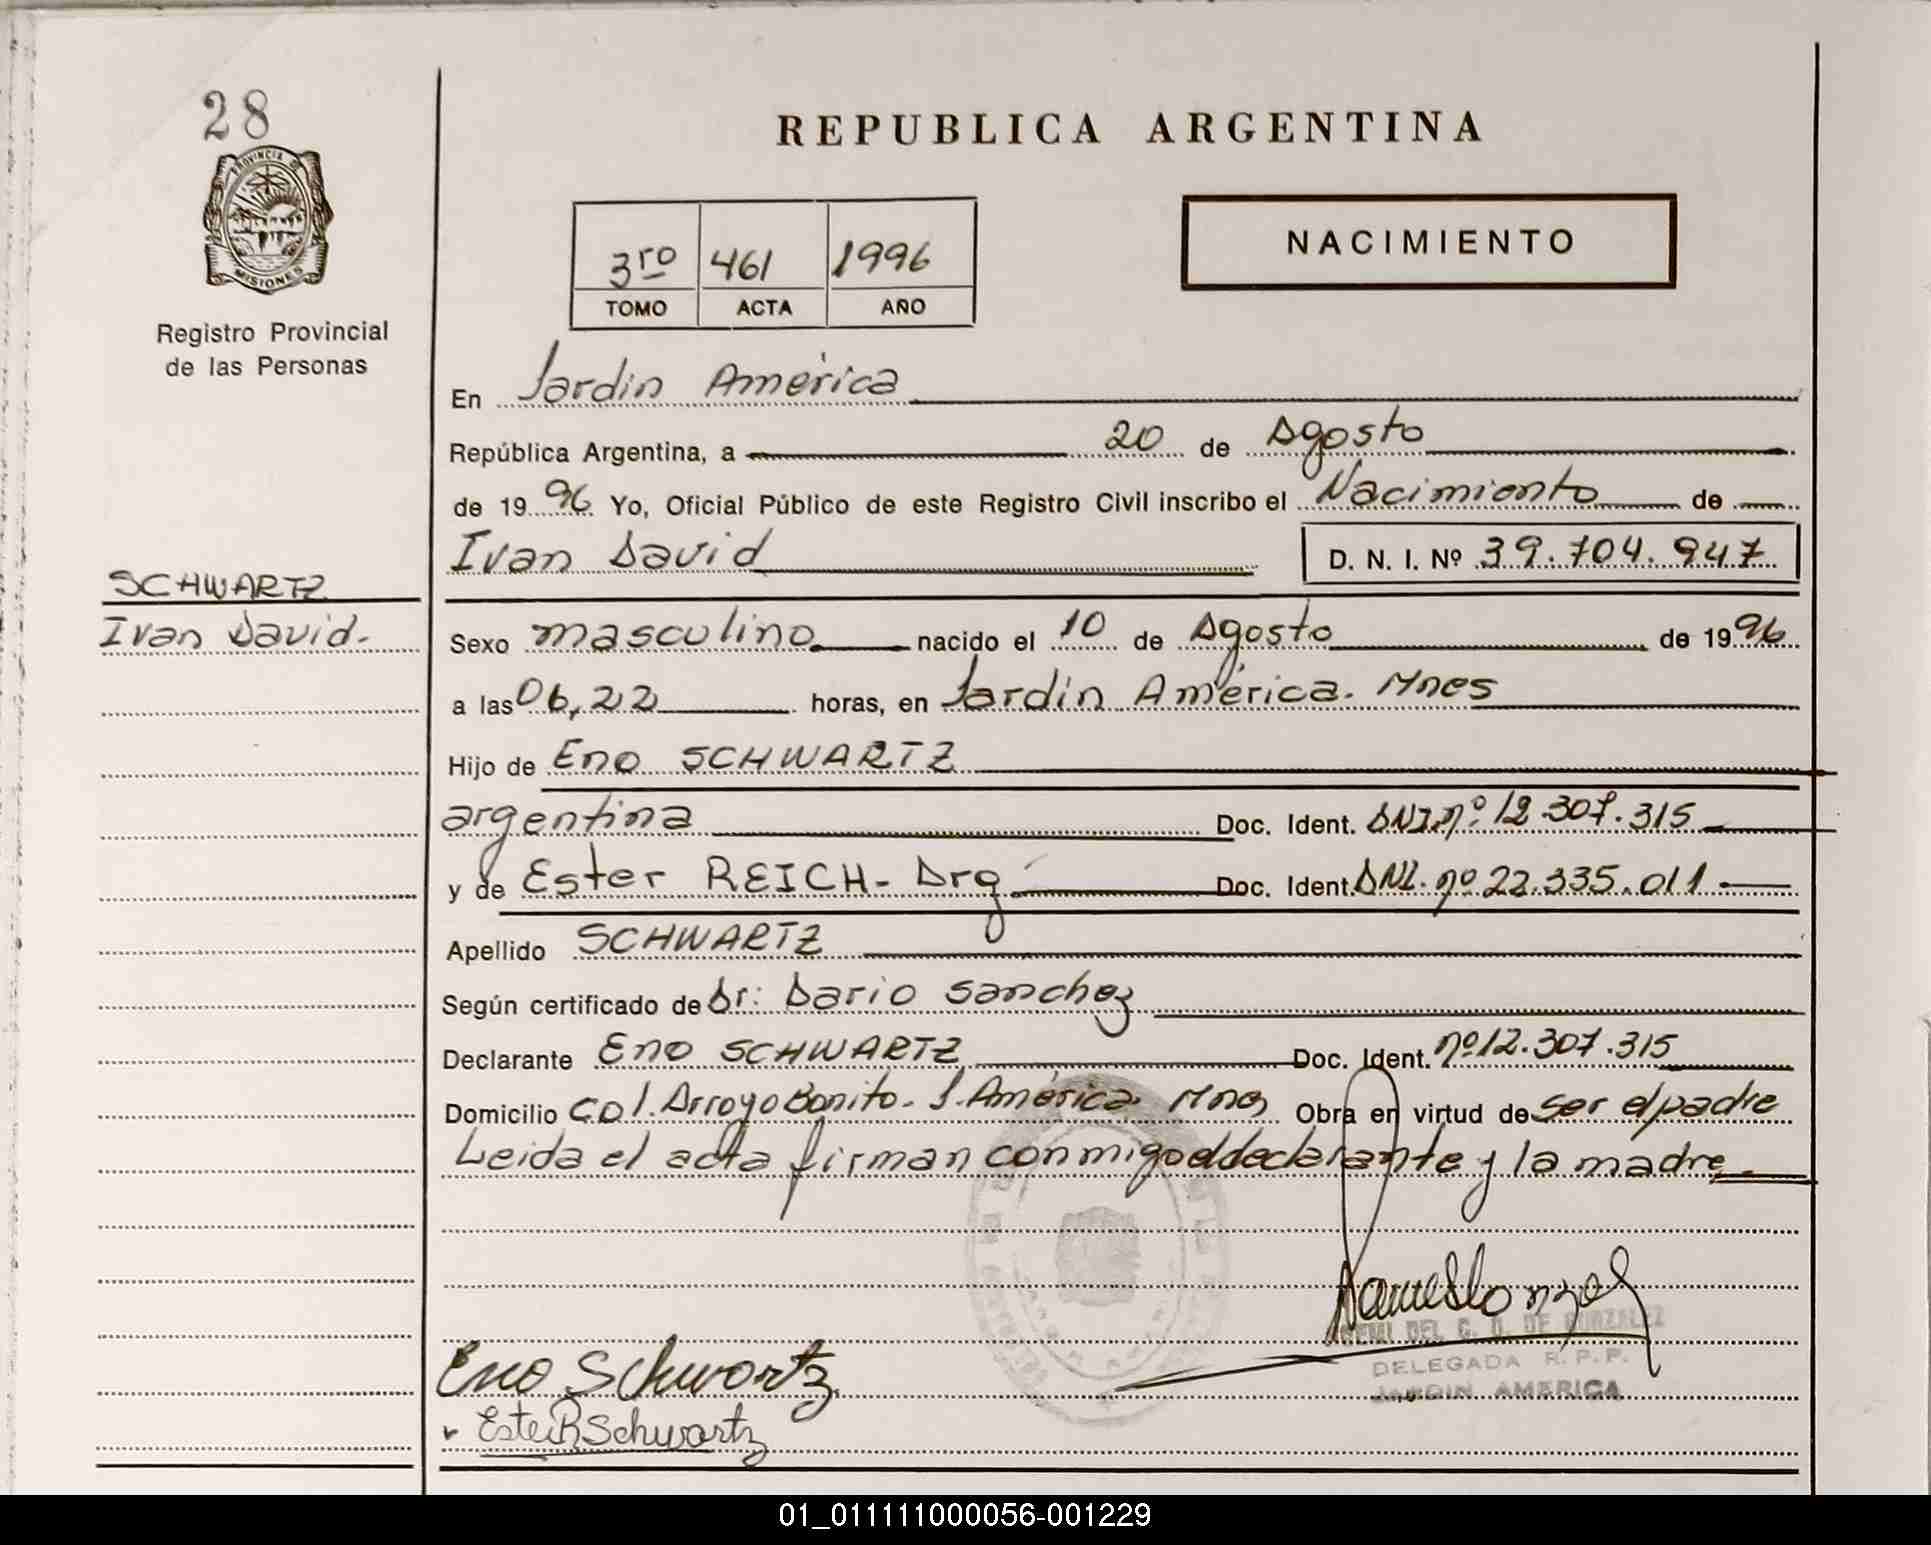 28
PROVINCIA DE
MISIONES
Registro Provincial
de las Personas
SCHWARTZ
Ivan David.
REPUBLICA ARGENTINA
3ro 461 1996
TOMO ACTA AÑO
NACIMIENTO
En Jardin América
República Argentina, a 20 de Agosto
de 1996 Yo, Oficial Público de este Registro Civil inscribo el Nacimiento de
Ivan David D. N. I. Nº 39.704.947
Sexo masculino nacido el 10 de Agosto de 1996
a las 06,22 horas, en Jardin América. Mnes
Hijo de Eno SCHWARTZ
argentina Doc. Ident. DNI.nº.12.307.315
y de Ester REICH- Arg Doc. Ident. DNI. nº 22.335.011
Apellido SCHWARTZ
Según certificado de Dr: Dario Sanchez
Declarante Eno SCHWARTZ Doc. Ident. nº12.307.315
Domicilio Col. Arroyo Bonito. J. América Mnes Obra en virtud de ser el padre
Leida el acta firman conmigo el declarante y la madre.
DEL C. D. DE GONZALEZ
DELEGADA R.P.P.
JARDIN AMERICA
Eno Schwartz
Ester R Schwartz
01_011111000056-001229